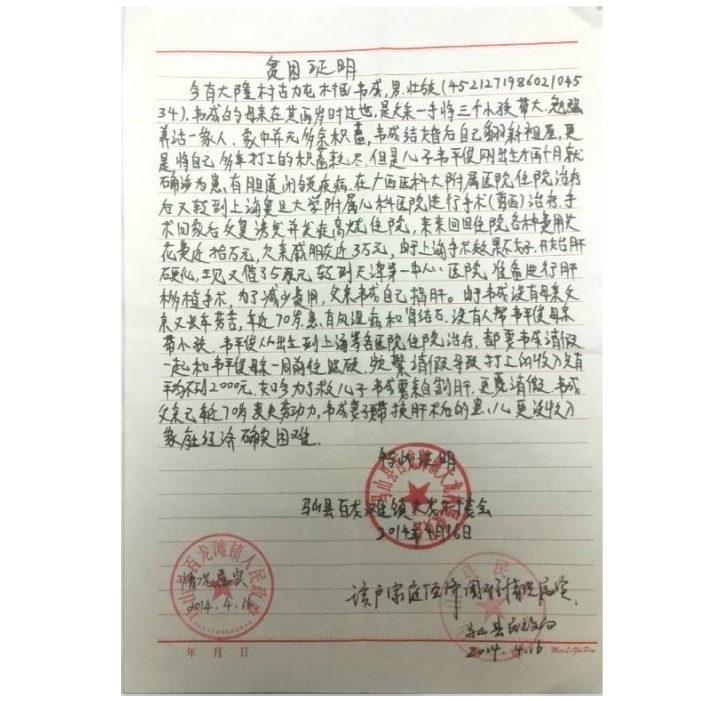 贫困证明
今有大隆村古力屯村民韦成,男.壮族(4521271986021045
34).韦成的母亲在其两岁时过世,是父亲一手将三个小孩带大.勉强
养活一家人、家中并无多余积蓄,韦成结婚后自己翻新祖屋,更
是将自己多年打工的积蓄耗尽.但是儿子韦平俊刚出生才两个月就
确诊为患有胆道闭锁疾病.在广西医科大附属医院住院治疗
后又转到上海复旦大学附属儿科医院进行手术(葛西)治疗.手
术回家后反复诱发并发症高烧住院,来来回回住院各种费用共
花费近拾万元,欠亲戚朋友近3万元,由于上海手术效果不太好.开始肝
硬化,现又借了5万元转到天津第一中心医院准备进行肝
移植手术,为了减少费用,父亲韦成自己捐肝.由于韦成没有母亲父
亲又长年劳苦,年近70岁.患有风湿病和肾结石,没有人帮韦平俊母亲
带小孩.韦平俊从出生到上海等各医院住院治疗.都要韦成请假
一起和韦平俊母亲一同前往照顾.频繁请假导致打工的收入每月
平均不到2000元.如今为了救儿子韦成要亲自割肝.更要请假.韦成
父亲已年近70岁丧失劳动力,韦成妻子带换肝术后的患儿更没收入
家庭经济确实困难.
特此证明
马山县百龙滩镇大龙村委会
2014年4月16日
马山县百龙滩镇人民政府
情况属实
2014.4.16
该户家庭经济困难情况属实.
马山县民政局
2014.4.16
年 月 日